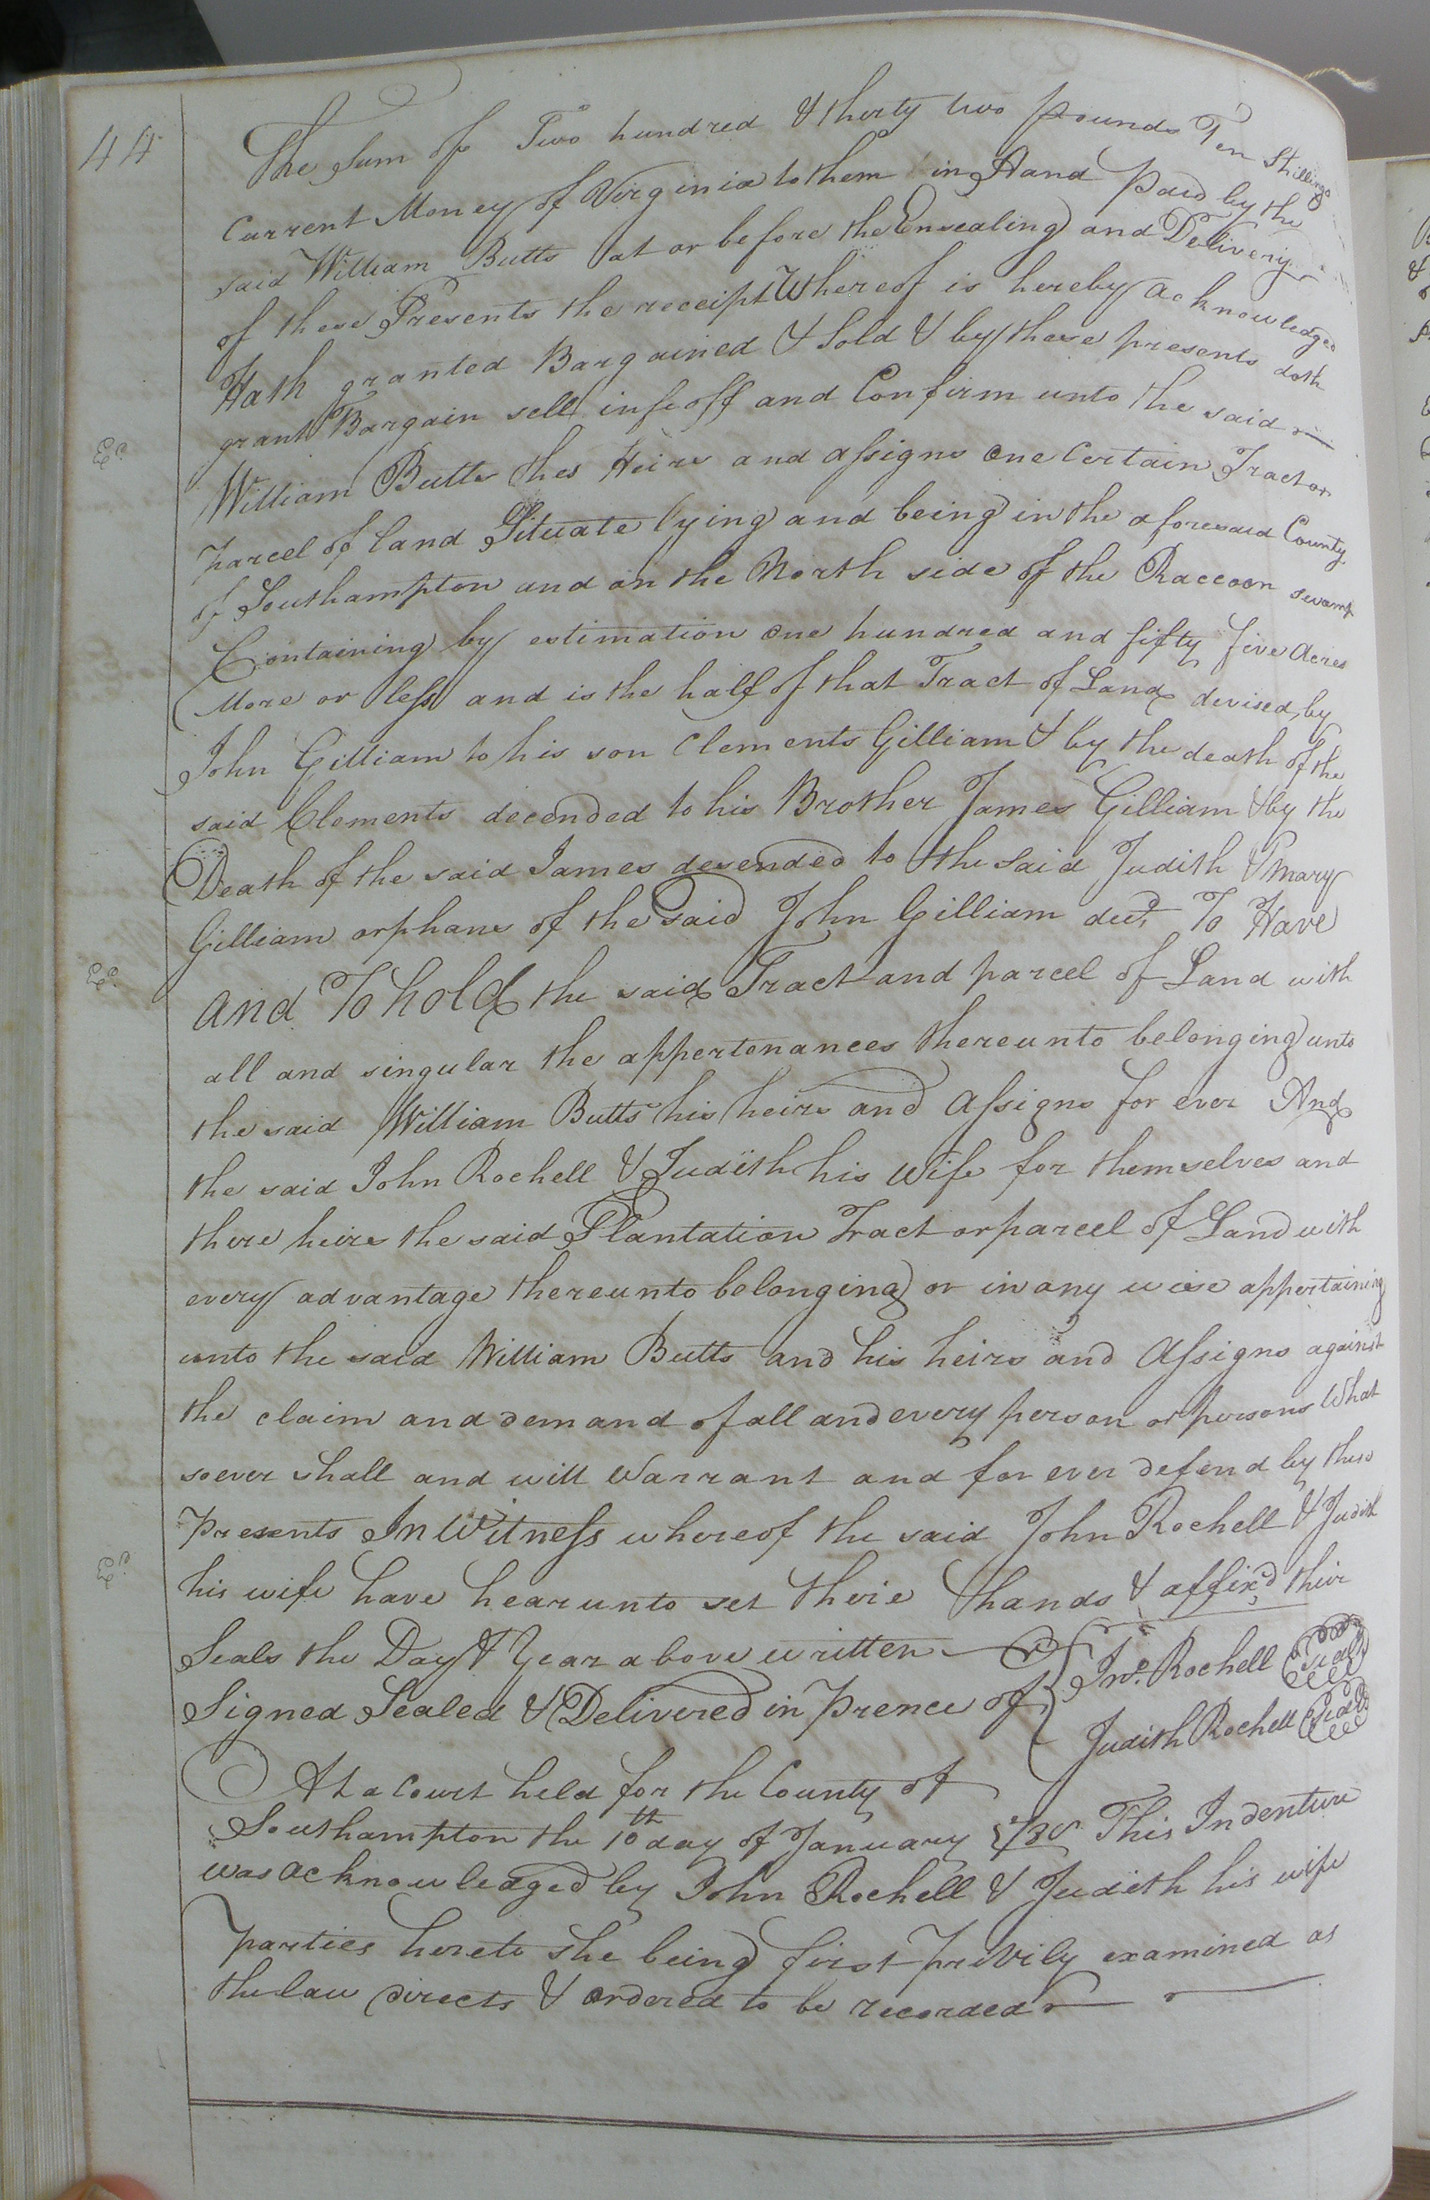 44
The Sum of Two hundred & therty two pounds Ten Shillings
Current Money of Virginia to them in Hand Paid by the
said William Butts at or before the Ensealing and Delivery
of these Presents the receipt Whereof is hereby acknowledged
Hath granted Bargained & Sold & by these presents doth
grant Bargain sell infeoff and Confirm unto the said
William Butts hes Heirs and assigns One Certain Tract or
parcel of land Situate lying and being in the aforesaid County
of Southampton and on the North side of the Raccoon swamp
Containing by estimation One hundred and fifty five Acres
More or less and is the half of that Tract of Land devised by
John Gilliam to his son Clements Gilliam & by the death of the
said Clements decended to his Brother James Gilliam & by the
Death of the said James desended to the Said Judith & Mary
Gilliam orphans of the said John Gilliam decd. To Have
and To hold the said Tract and parcel of Land with
all and singular the appertenances thereunto belonging unto
the said William Butts his heirs and Assigns for ever And
the said John Rochell & Judith his Wife for themselves and
there heirs the said Plantation Tract or parcel of Land with
every advantage thereunto belonging or in any wise appertaining
unto the said William Butts and his heirs and Assigns against
the claim and demand of all and every person or persons What
soever shall and will Warrant and for ever defend by these
Presents In Witness whereof the said John Rochell & Judith
his wife have hearunto set theie hands & affix'd their
Seals the Day & Year above written
Jno. Rochell Seal
Signed Sealed & Delivered in prence of
Judith Rochell Seal
At a Court held for the County of
Southampton the 10th day of January This Indenture
was acknowledged by John Rochell & Judith his wife
parties hereto she being first privily examined as
the law directs & ordered to be recorded